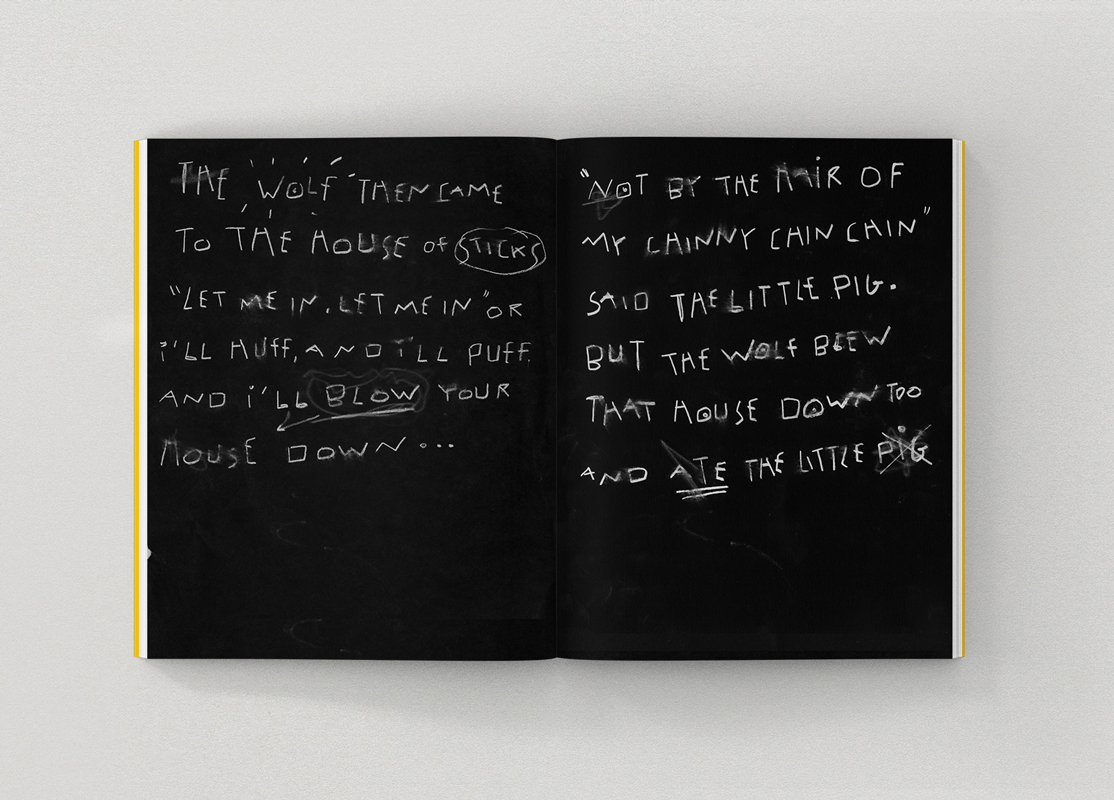 THE WOLF THEN CAME
TO THE HOUSE OF STICKS
"LET ME IN, LET ME IN" OR
I'LL HUFF, AND I'LL PUFF
AND I'LL BLOW YOUR
HOUSE DOWN...
"NOT BY THE HAIR OF
MY CHINNY CHIN CHIN"
SAID THE LITTLE PIG.
BUT THE WOLF BLEW
THAT HOUSE DOWN TOO
AND ATE THE LITTLE PIG